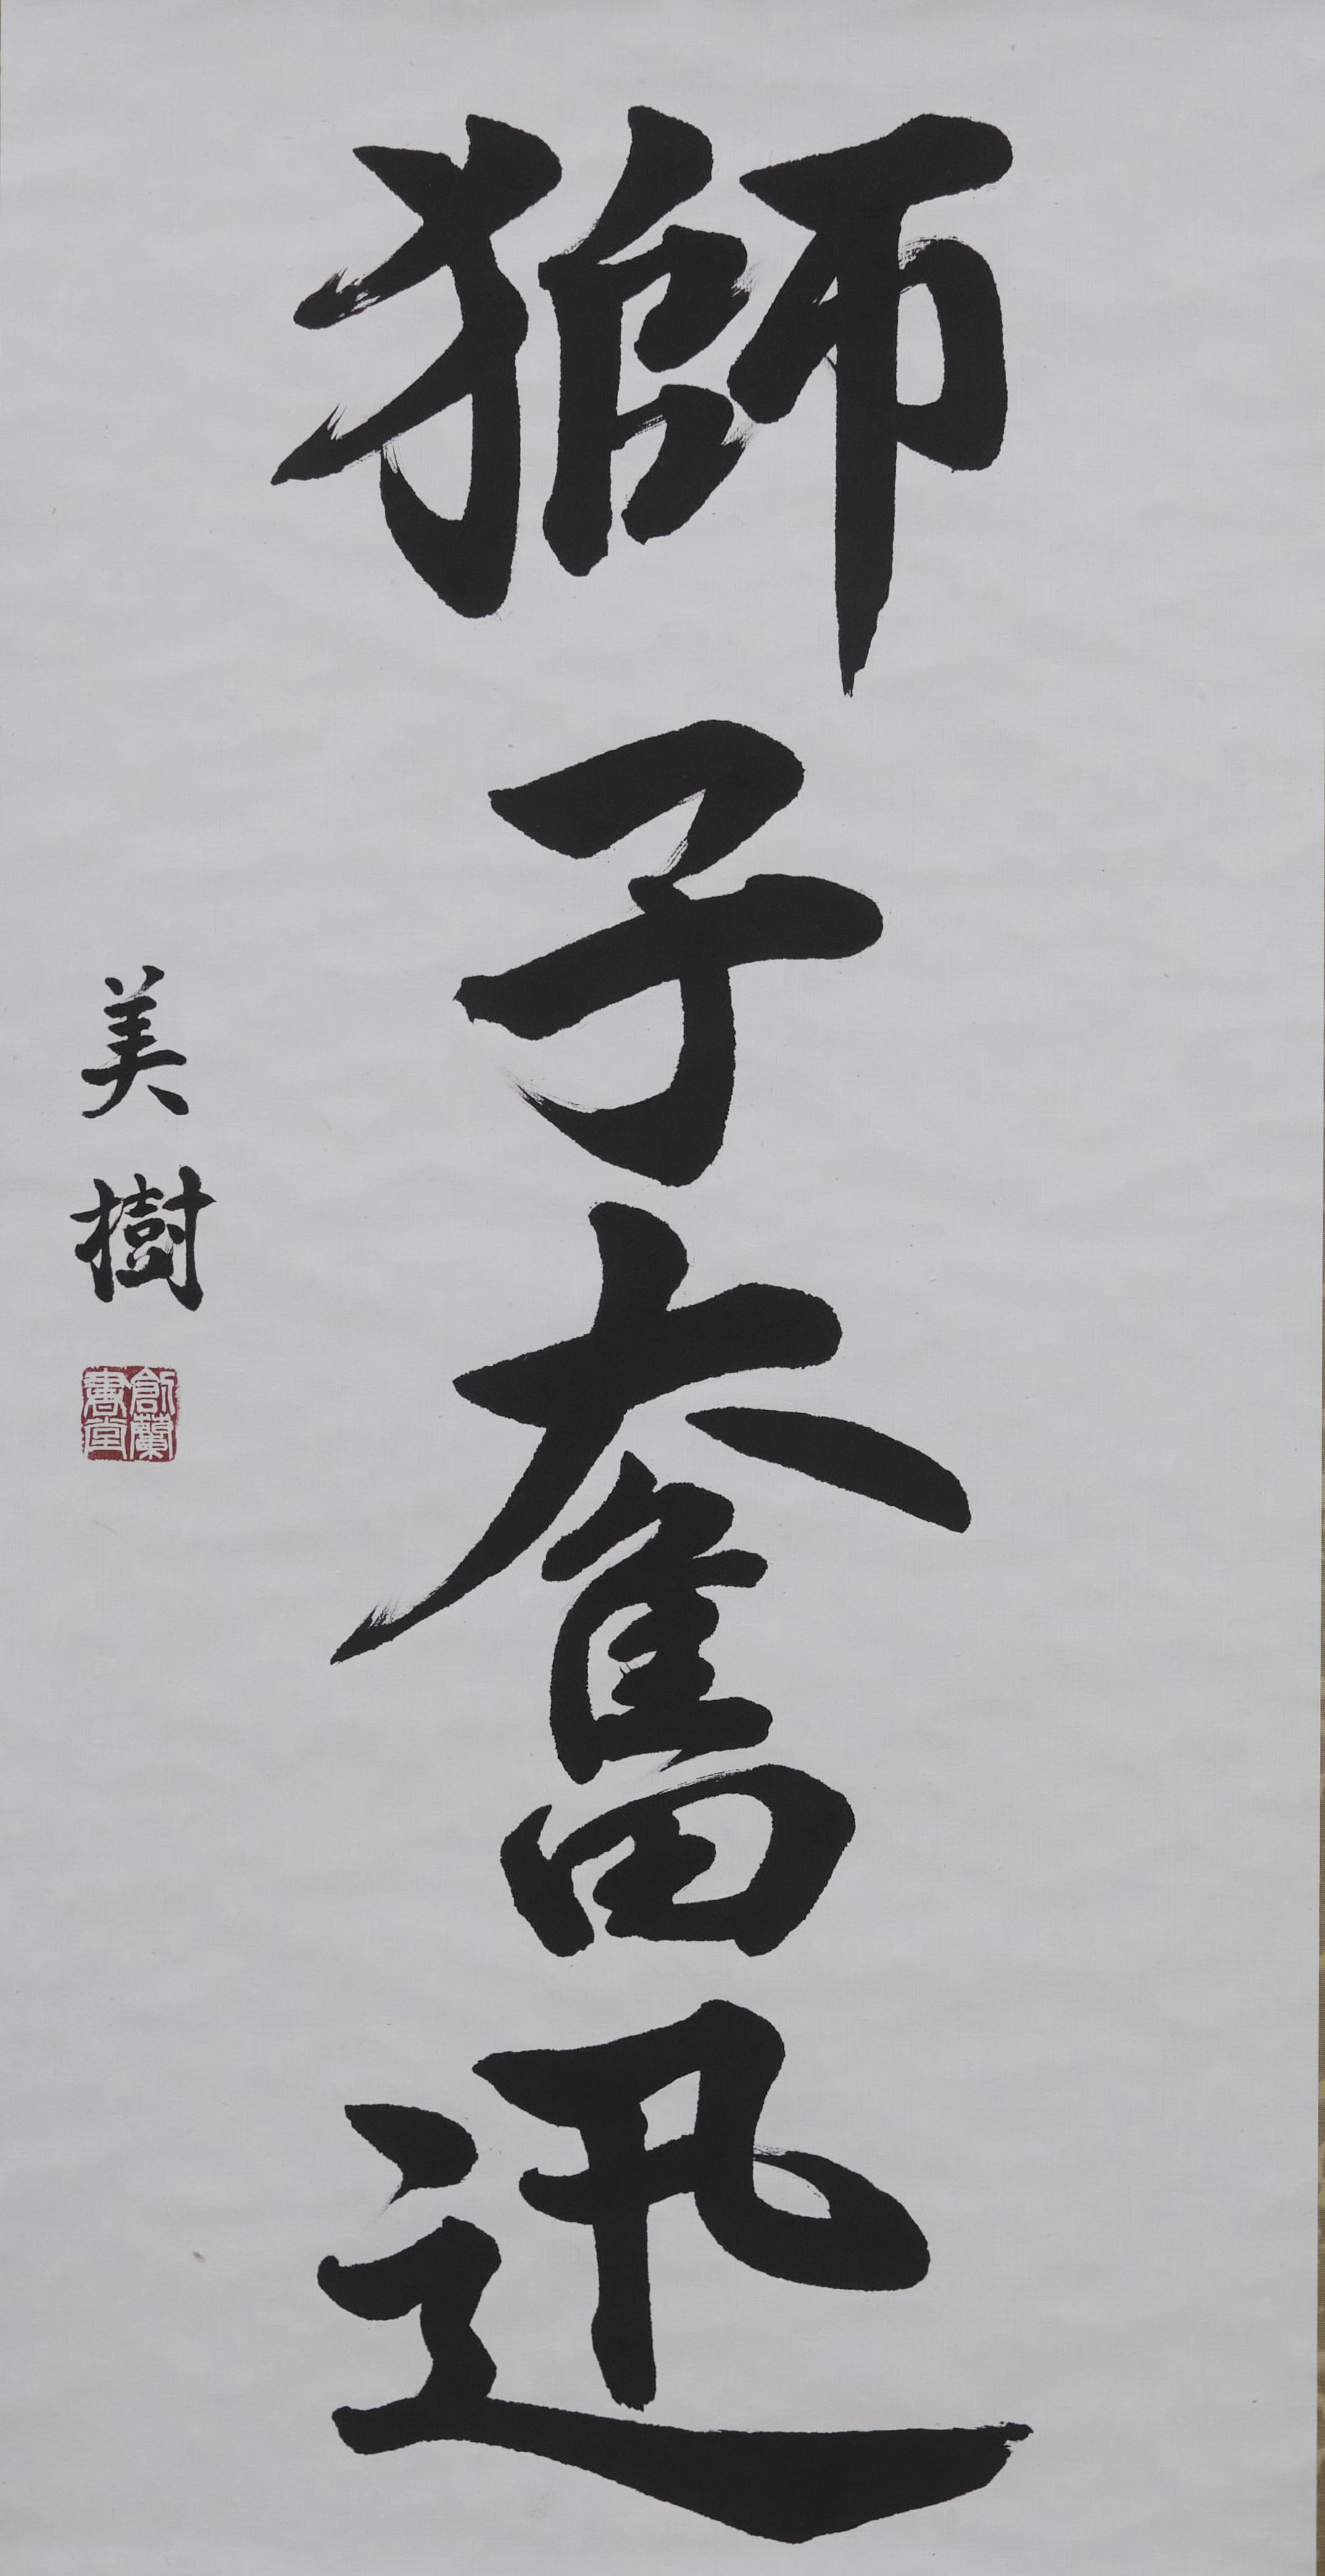 獅子奮迅
美樹
創蘭書堂